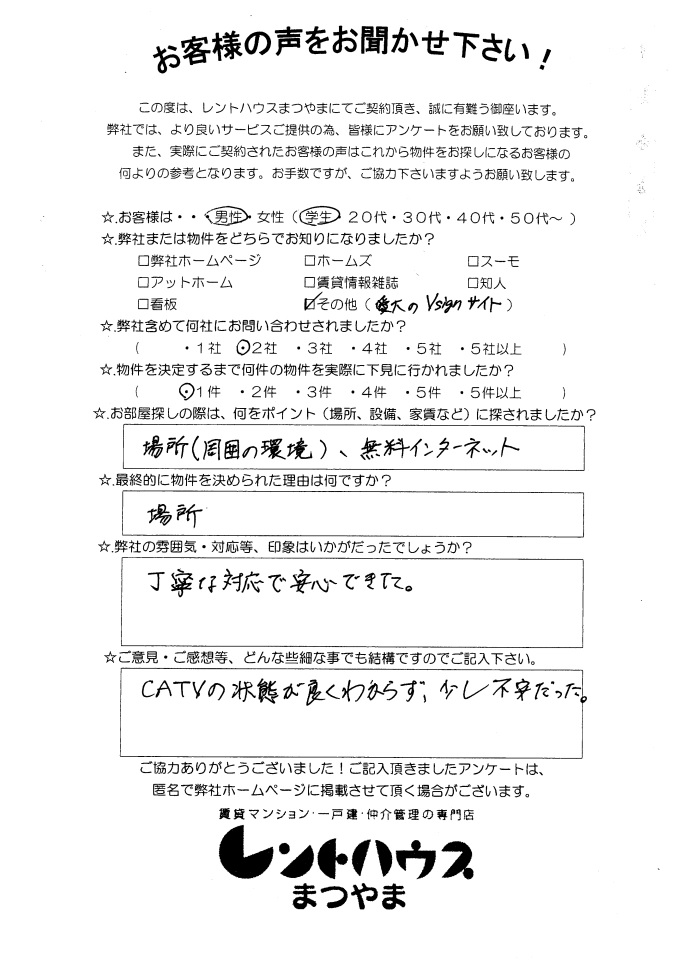 お客様の声をお聞かせ下さい！
この度は、レントハウスまつやまにてご契約頂き、誠に有難う御座います。
弊社では、より良いサービスご提供の為、皆様にアンケートをお願い致しております。
また、実際にご契約されたお客様の声はこれから物件をお探しになるお客様の
何よりの参考となります。お手数ですが、ご協力下さいますようお願い致します。
☆.お客様は・・・男性・女性（学生・２０代・３０代・４０代・５０代～）
☆.弊社または物件をどちらでお知りになりましたか？
□弊社ホームページ □ホームズ □スーモ
□アットホーム □賃貸情報雑誌 □知人
□看板 ☑その他（愛大のVsignサイト）
☆.弊社含めて何社にお問い合わせされましたか？
（ ・１社 ・２社 ・３社 ・４社 ・５社 ・５社以上 ）
☆.物件を決定するまで何件の物件を実際に下見に行かれましたか？
（ ・１件 ・２件 ・３件 ・４件 ・５件 ・５件以上 ）
☆.お部屋探しの際は、何をポイント（場所、設備、家賃など）に探されましたか？
場所（周囲の環境）、無料インターネット
☆.最終的に物件を決められた理由は何ですか？
場所
☆.弊社の雰囲気・対応等、印象はいかがだったでしょうか？
丁寧な対応で安心できた。
☆ご意見・ご感想等、どんな些細な事でも結構ですのでご記入下さい。
CATVの状態が良くわからず、少し不安だった。
ご協力ありがとうございました！ご記入頂きましたアンケートは、
匿名で弊社ホームページに掲載させて頂く場合がございます。
賃貸マンション・一戸建・仲介管理の専門店
レントハウス
まつやま